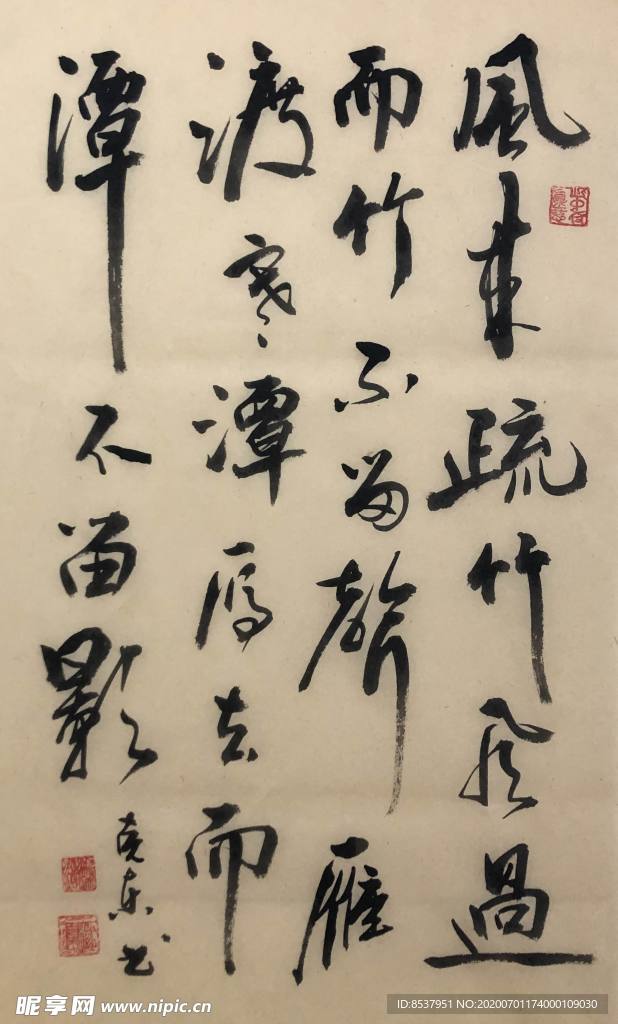 風来疏竹風過
而竹不留聲雁
渡寒潭雁去而
潭不留影
克东书
昵享网 www.nipic.cn
ID:8537951 NO:20200701174000109030